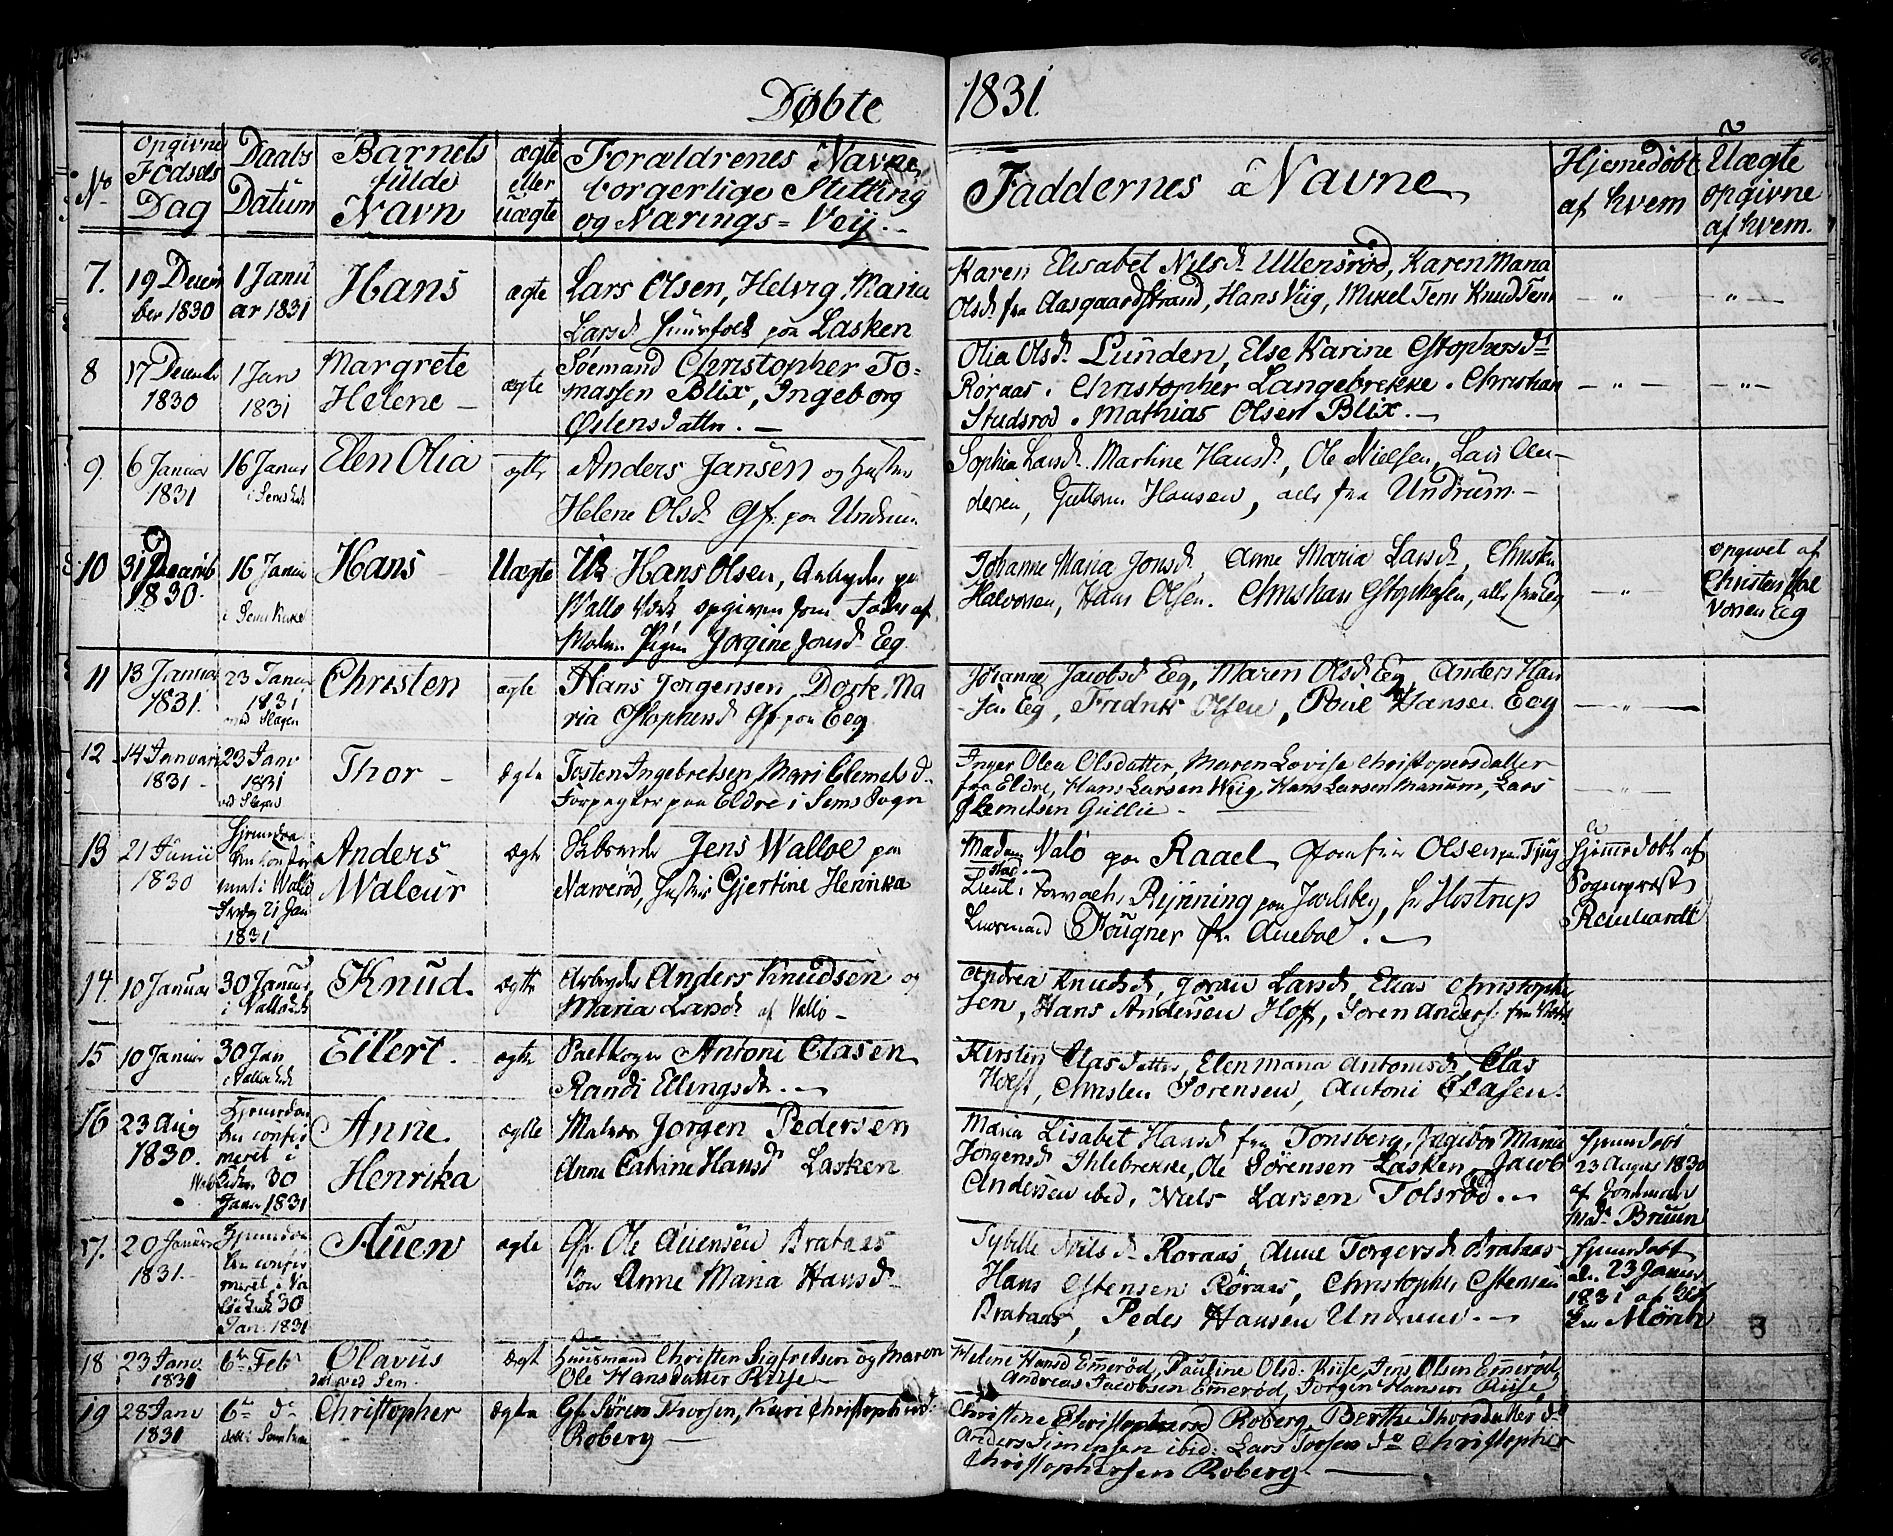 Døbte 1831.
No
opgivne Födsels Dag
Daabs Datum
Barnets fulde Navn
ægte eller uægte
Forældrenes Navne, borgerlige Stilling og Nærings=Veij.
Faddernes Navne
Hjemedøbt af hvem
Uægte opgivne af hvem.
7. 19 Decem 1 Janu Hans ægte Lars Olsen, Helvig Maria
ber 1830 ar 1831 Larsd. Huusfolk paa Lasken
Karen Elisabet Nilsd. Ullensrød, Karen Maria
Olsd. fra Aasgaardstrand, Hans Viig, Mikel Tem Knud Tem
8 17 Decemb 1 Jan Margrete ægte Søemand Christopher To=
1830 1831 Helene massen Blix, Ingeborg
Østensdatter.
Olia Olsd. Lunden, Else Karine Cstophersd.
Røraas. Christopher Langebrekke. Christian
Studsrød. Mathias Olsen Blix.
9. 6 Januar 16 Januar Elen Olia ægte Anders Jansen og Hustru
1831 i Sems Kirk Helene Olsd. Gf. paa Undrum
Sophia Larsd. Martine Hansd., Ole Nielsen, Lars
Guttorm Hansen, alle fra Undrum
10 31 Decemb 16 Januar Hans Uægte Hans Olsen, Arbeyder paa
1830. i Sems Kirke Vallø Værk opgiven som Fader af
Moderen Pigen Jorgine Jonsd. Eeg
Johanne Maria Jonsd. Anne Maria Larsd., Christen
Halvorsen, Hans Olsen. Christian Cstophersen, alle fra Eeg
opgivet af
Christen Hal
vorsen Eeg
11 13 Januar 23 Januar Christen ægte Hans Jorgensen, Dorte Ma
1831. 1831 ved Slagen ria Cstophersd. Gf. paa Eeg
Johanne Jacobsd. Eeg, Maren Olsd. Eeg, Anders Han
sen Eeg, Fredrik Olsen, Poul Hansen Eeg
12 14 Januari 23 Janv Thor ægte Tosten Ingebretsen, Mari Clemetsd.
1831 1831 ved Slagen Forpagter paa Eldre i Sems Sogn
Inger Olea Olsdatter, Maren Lovise Christopersdatter
fra Eldre, Hans Larsen Wiig, Hans Larsen Manum, Lars
Clemetsen Gullie
13 21 Junii 1830 Hjemmdøa
ben confir
meret i Vallø
21 Jan
1831
Anders Waleur
ægte Jens Walloe paa
Narverød, Hustrue Gjertine Henrika
Madam Valø paa Raael Jomfru Olsen
Rynning paa Jarlsberg, Hr Hostrup
Fougner fra Aueboe.
Hjemmedøbt af
Sogneprest
Reinhardt
14. 10 Januar 30 Januar Knud. ægte Arbeyder Anders Knudsen og
i Vallø Kirk Maria Larsd. af Vallø
Andrea Knudsd., Joran Larsd., Elias Christophe
sen, Hans Andersen Hoff, Soren Anders: fra Vallø
15 10 Januar 30 Jan Eilert. ægte Antoni Clasen
i Vallø Kirk Randi Ellingsd.
Kirsten Clasdatter, Elen Maria Antonisd., Clas
Hoeg, Christen Sorensen, Antoni Clasen.
16 23 Aug 1830. Hjemmedøa
ben confir
meret i
Kirken 30
Janr 1831
Anne Henrika
ægte Matros Jorgen Pedersen
Anne Catrine Hansd. Lasken
Maria Lisabet Hansd. fra Tonsberg, Ingebor Maria
Jörgensd. Ihlebrekke, Ole Sörensen Lasken, Jacob
Andersen ibid. Niels Larsen Tolsrød.
Hjemmdøbt
23 August 1830
af Jordmoder
Mad. Bruun
17. 20 Januar 1831 Hjemmedøa
ben confir
meret i Va
löe Kirk 30
Jan: 1831
Auen
ægte Gf Ole Auensen Brataas
Anne Maria Hansd.
Sybille Nilsd. Roraas, Anne Torgersd. Brataas
Hans Estensen Røraas, Christopher Estensen
Brataas, Peder Hansen Undrum.
Hjemmedøbt
23 Januar
1831 af
Mörch
18 23 Janv 6te Feb Olavus ægte Huusmand Christen Sigfretsen og Maren
1831 døbt ved Sem Ole Hansdatter Riise
Helene Hansd Emerød, Pauline Olsd. Riise, Jens Olsen Emerød,
Andreas Jacobsen Emerød, Jorgen Hansen Riise
19 28 Janv 6te do Christopher ægte Gb Sören Thorsen, Kari Christophersd.
1831 Roberg
Christine Christophersd Roberg, Berthe Thorsdatter do
Anders Simensen ibid: Lars Torsen do Christopher
Christophersen Roberg